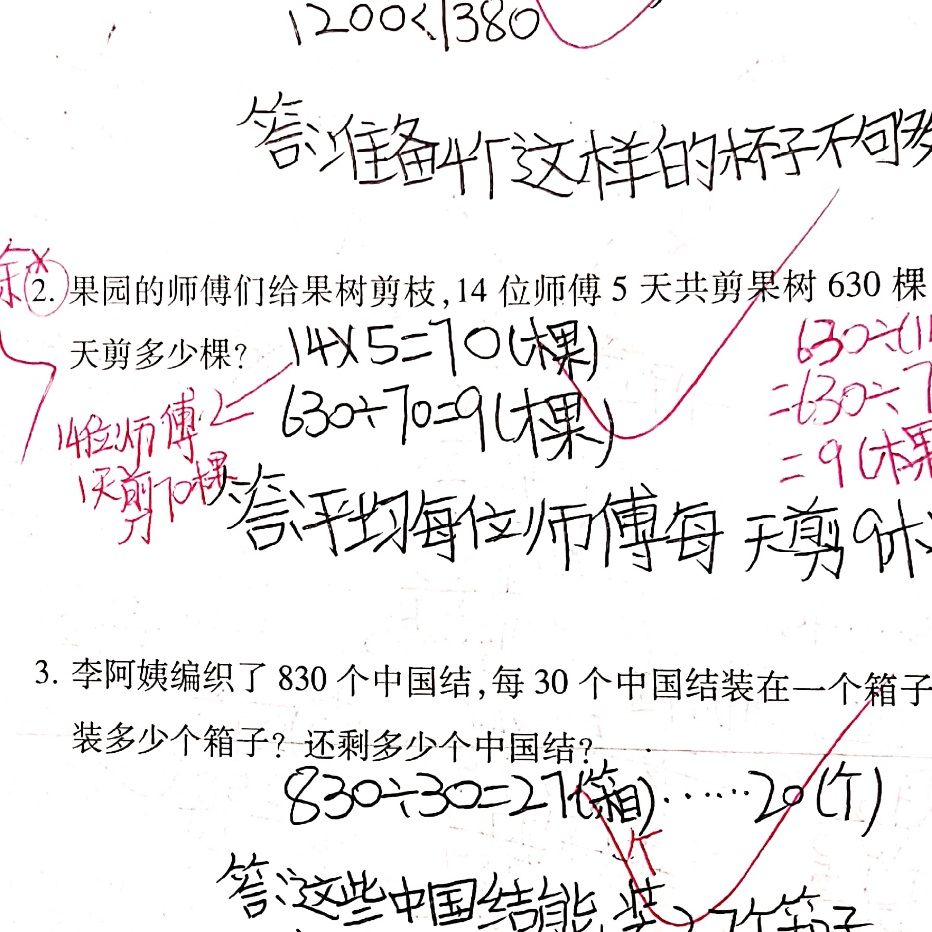 1200<1380
答:准备4个这样的杯子不够
2. 果园的师傅们给果树剪枝,14 位师傅 5 天共剪果树 630 棵
天剪多少棵? 14×5=70(棵)
630÷(1
630÷70=9(棵)
=630÷7
14位师傅
=9(棵
1天剪70棵
答:平均每位师傅每天剪9
3. 李阿姨编织了 830 个中国结,每 30 个中国结装在一个箱子
装多少个箱子? 还剩多少个中国结?
830÷30=27(箱)……20(个)
个
答:这些中国结能装27个箱子